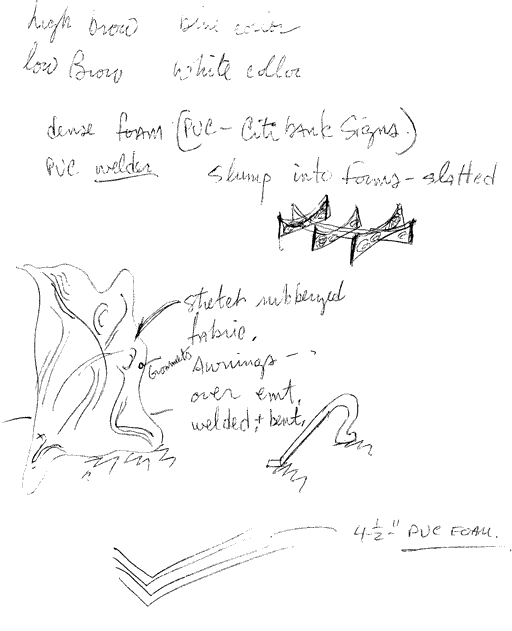 high brow blue collar
low Brow white collar
dense foam (PVC - Citibank Signs.)
PVC welder slump into forms - slotted
stretch rubberized
fabric.
Grommets
Awnings -
over emt.
welded + bent.
4-1/2" PVC FOAM.